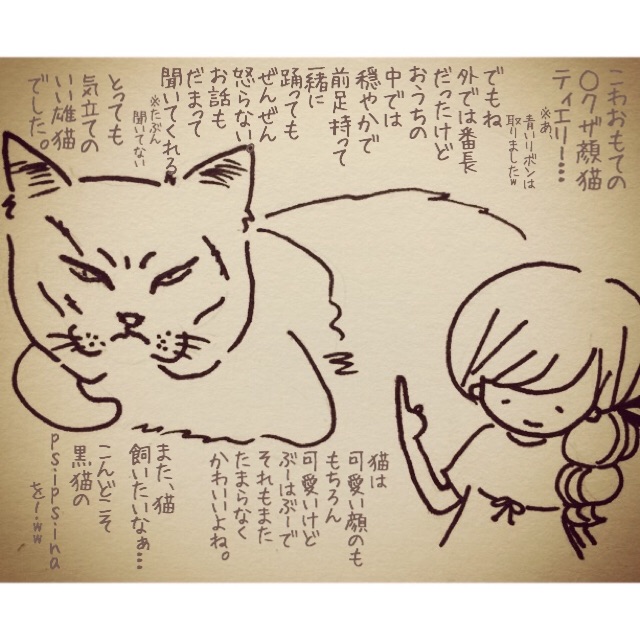 こわおもての
〇クザ顔猫
ティエリー…
※あ、
青いリボンは
取りましたw
でもね
外では番長
だったけど
おうちの
中では
穏やかで
前足持って
一緒に
踊っても
ぜんぜん
怒らない
お話も
だまって
聞いてくれる
※たぶん
聞いてない
とっても
気立ての
いい雄猫
でした。
猫は
可愛い顔のも
もちろん
可愛いけど
ぶーはぶーで
それもまた
たまらなく
かわいいよね。
また、猫
飼いたいなぁ…
こんどこそ
黒猫の
psipsina
を!ww